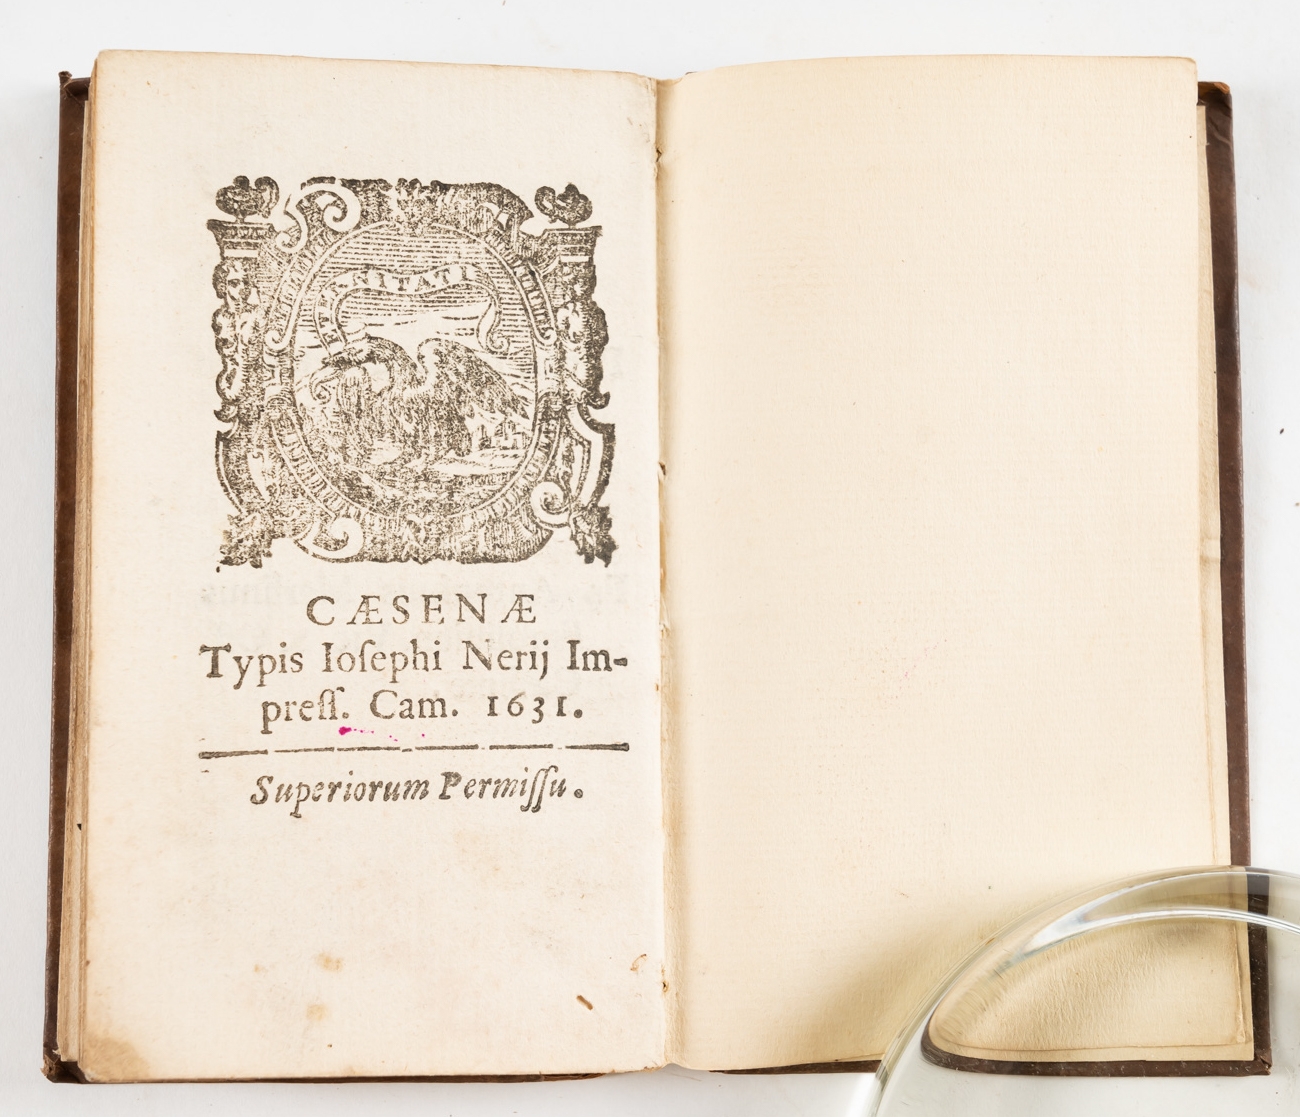 CÆSENÆ
Typis Ioſephi Nerij Im-
preſſ. Cam. 1631.
Superiorum Permiſſu.